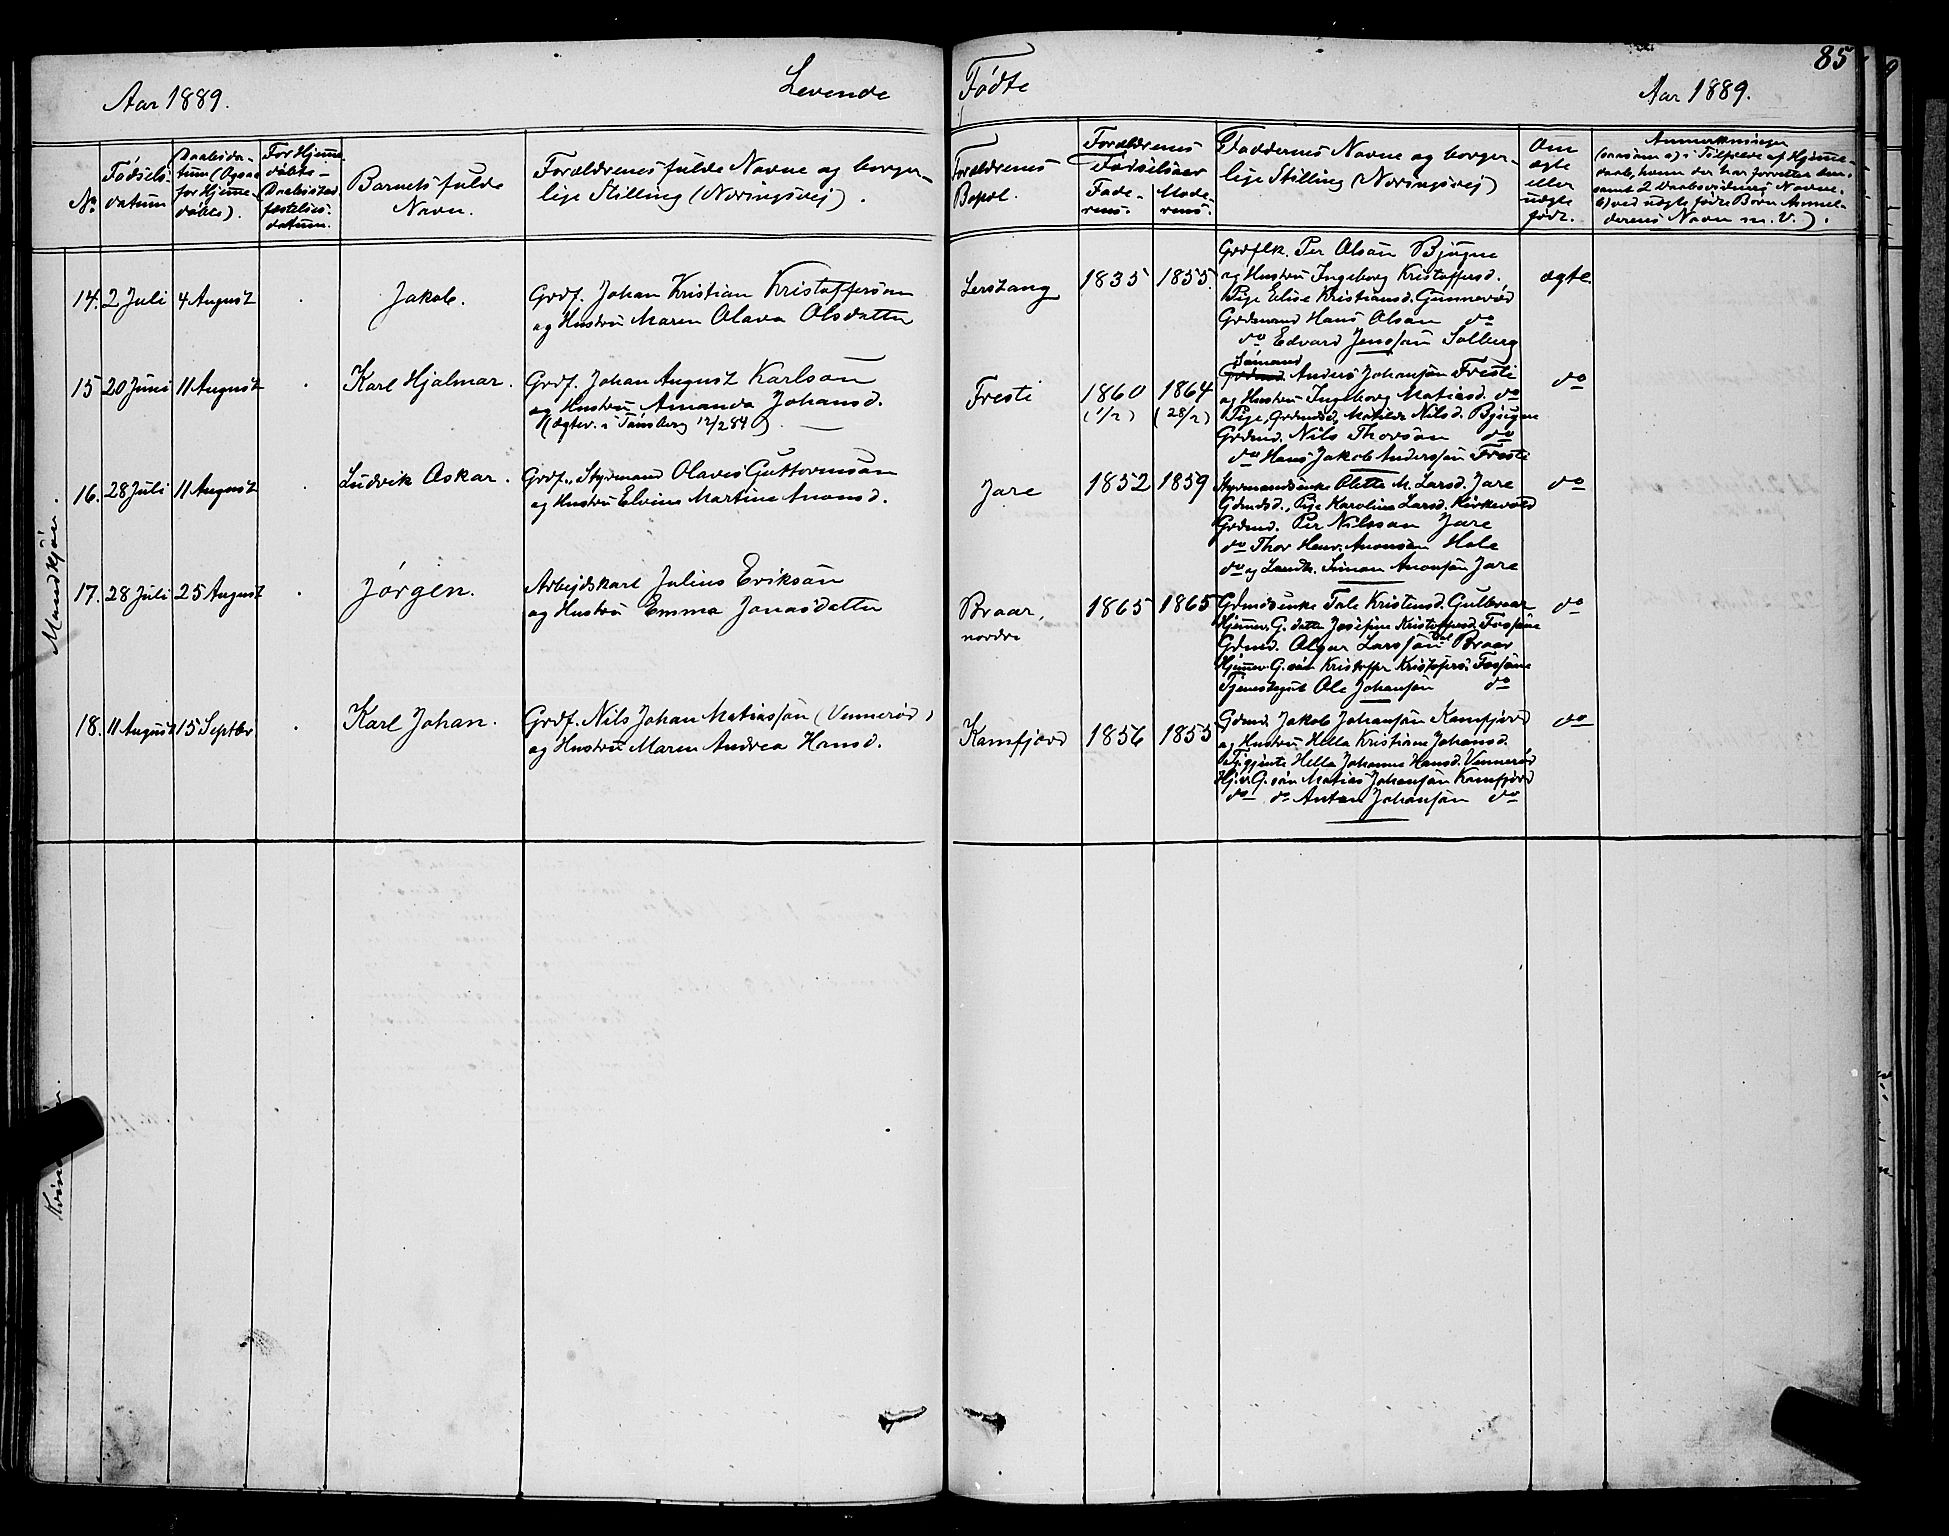 85
Aar 1889.
Levende
Fødte
Aar 1889.
No
Fødsels-
datum
Daabsda-
tum (Ogsaa
for Hjemme-
døbte).
For Hjemme-
døbte -
Daabsstad-
fæstelses-
datum.
Barnets fulde
Navn.
Forældrenes fulde Navne og borger-
lige Stilling (Næringsvej).
Forældrenes
Bopæl.
Forældrenes
Fødselsaar
Fade-
rens.
Mode-
rens.
Faddernes Navne og borger-
lige Stilling (Næringsvej)
Om
ægte
eller
uægte
født.
Anmerkninger
(saasom a) i Tilfælde af Hjemme-
daab, hvem der har forrettet den,
samt 2 Daabsvidners Navne.
b) ved uægte fødte Børn Anmel-
derens Navn m. V.).
Mandkjøn.
14. 2 Juli 4 August
Jakob.
Grdf. Johan Kristian Kristoffersøn
og Hustru Maren Olava Olsdatter
Lerstang
1835 1855.
Grdflk. Per Olsøn Bjugne
og Hustru Ingeborg Kristoffersd.
Pige Elise Kristiansd. Gunnerød
Grdmand Hans Olsøn do
do Edvard Jenssøn Solberg
ægte
15 20 Juni 11 August
Karl Hjalmar.
Grdf. Johan August Karlsøn
og Hustru Amanda Johansd.
(ægtev. i Tønsberg 12/2 84)
Fresti
1860 1864
(1/2) (28/2)
Sømand
Anders Johansøn Fresti
og Hustru Ingeborg Matiasd. do
Pige, Grdmdsd. Matilde Nilsd. Bjugne
Grdmd. Nils Thorsøn do
do Hans Jakob Anderssøn Fresti
do
16. 28 Juli 11 August
Ludvik Oskar.
Grdf., Styrmand Olaves Guttormsøn
og Hustru Elvine Martine Anonsd.
Jare
1852 1859
Styrmandsenke Olette M. Larsd. Jare
Gdmdsd., Pige Karoline Larsd. Kirkevold
Grdmd. Per Nilssøn Jare
do Thor Henr. Anonsøn Hole
do og Landh. Simon Anonsøn Jare
do
17. 28 Juli 25 August
Jørgen.
Arbejdskarl Julius Eriksøn
og Hustru Emma Jonasdatter
Braar,
nordre
1865 1865
Gdmdsenke Tale Kristensd. Gulbraar
Hjemmev. G. datter Josefine Kristoffersd. Fossane
Gdmd. Olgar Larssøn Braar
Hjemmev. G. søn Kristoffer Kristoffers. Fossane
Tjenestegut Ole Johansøn do
do
18. 11 August 15 Septbr
Karl Johan.
Grdf. Nils Johan Matiassøn (Vennerød)
og Hustru Maren Andrea Hansd.
Kamfjord
1856 1855
Gdmd. Jakob Johansøn Kamfjord
og Hustru Hella Kristiane Johansd.
Hella Johanne Hansd. Vennerød
Hj.v. G. søn Matias Johansøn Kamfjord
do do Anton Johansøn do
do